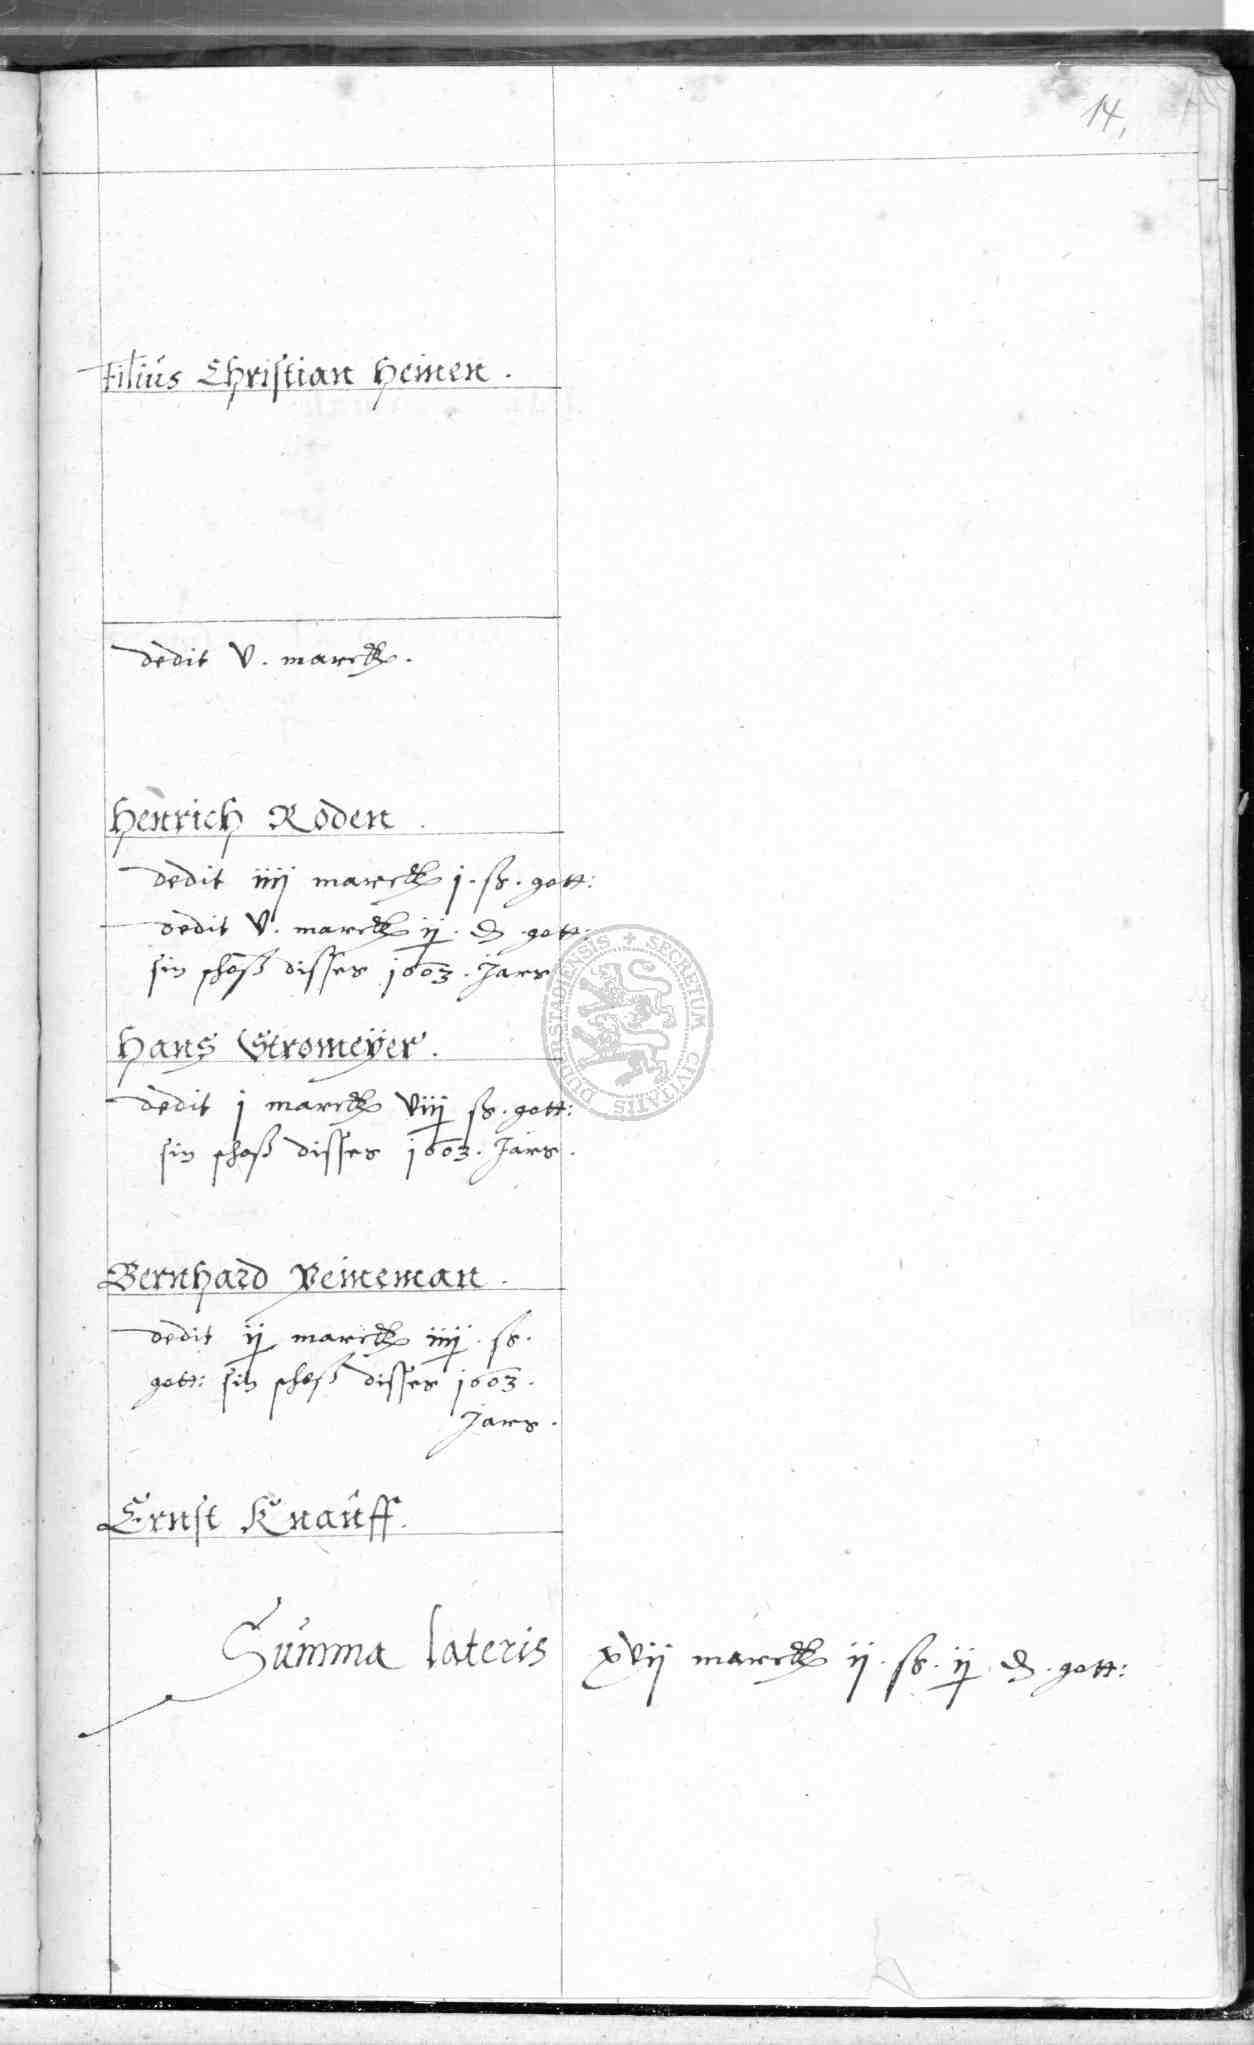 14,
Filius Christian Heinen.
dedit v. marck.
Henrich Roden.
dedit iiij marck j. ß. gott:
dedit v. marck ij. ₰ gott:
sin schoß disses 1603. Jars
Hans Stromeÿer.
dedit j marck viij ß. gott:
sin schoß disses 1603. Jars.
Bernhard Peineman.
dedit ij marck iiij. ß.
gott: sin schoß disses 1603.
Jars.
Ernst Knauff.
Summa lateris xvij marck ij. ß. ij ₰. gott:
SECRETUM CIVITATIS DUDERSTADIENSIS